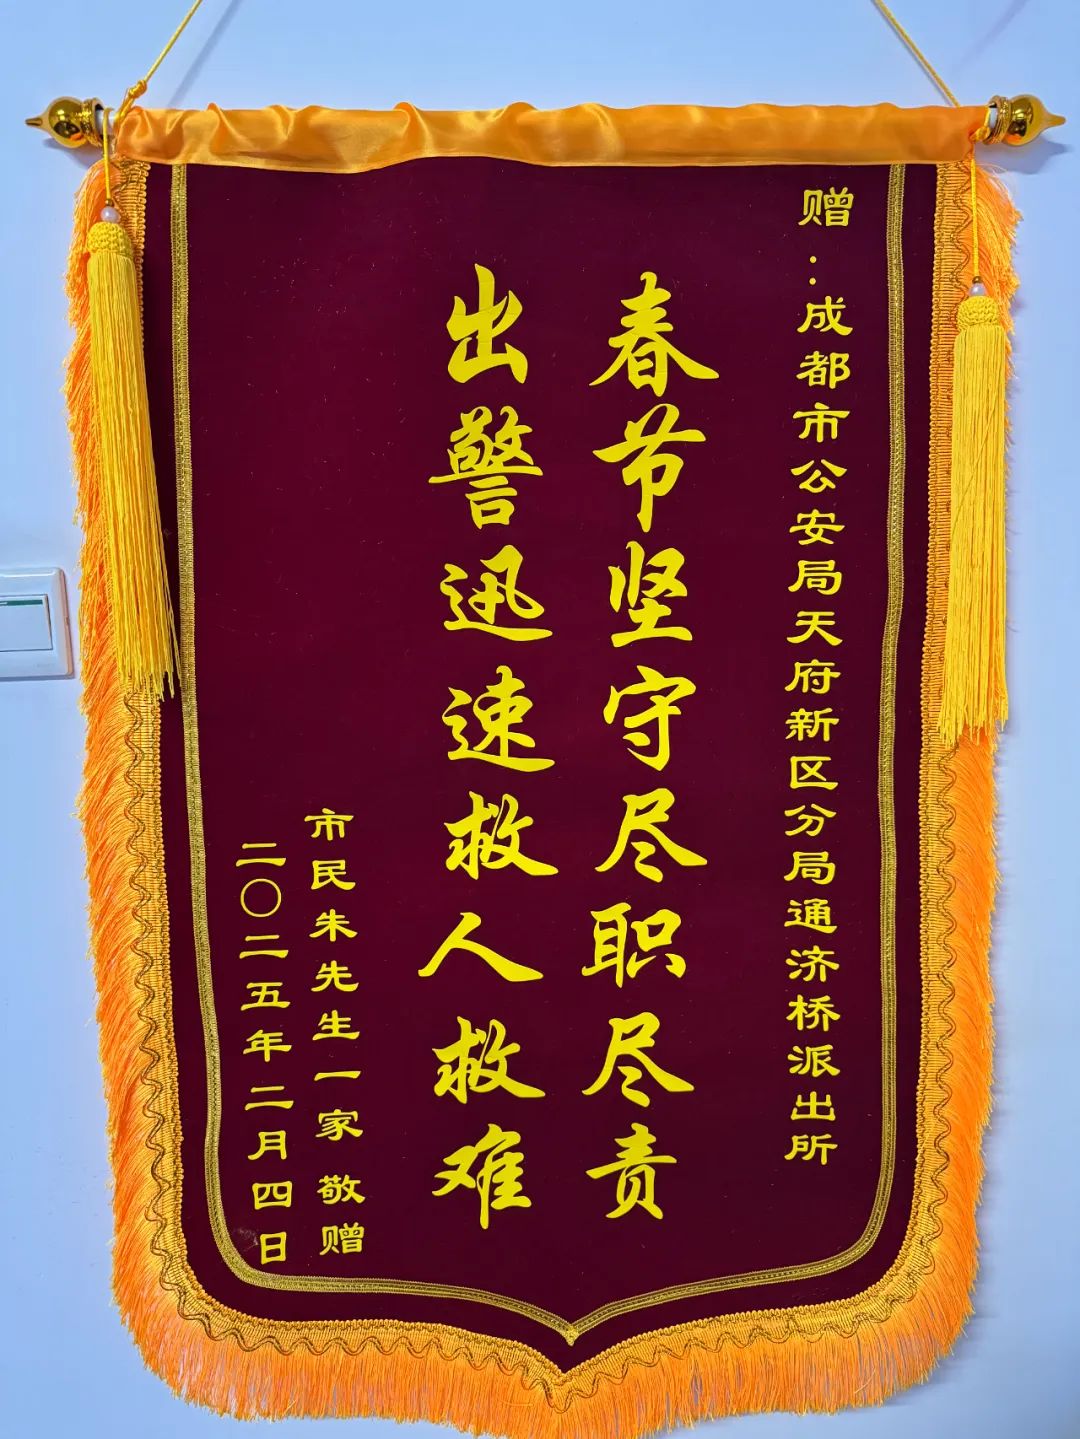 赠:成都市公安局天府新区分局通济桥派出所
春节坚守尽职尽责
出警迅速救人救难
市民朱先生一家 敬赠
二〇二五年二月四日